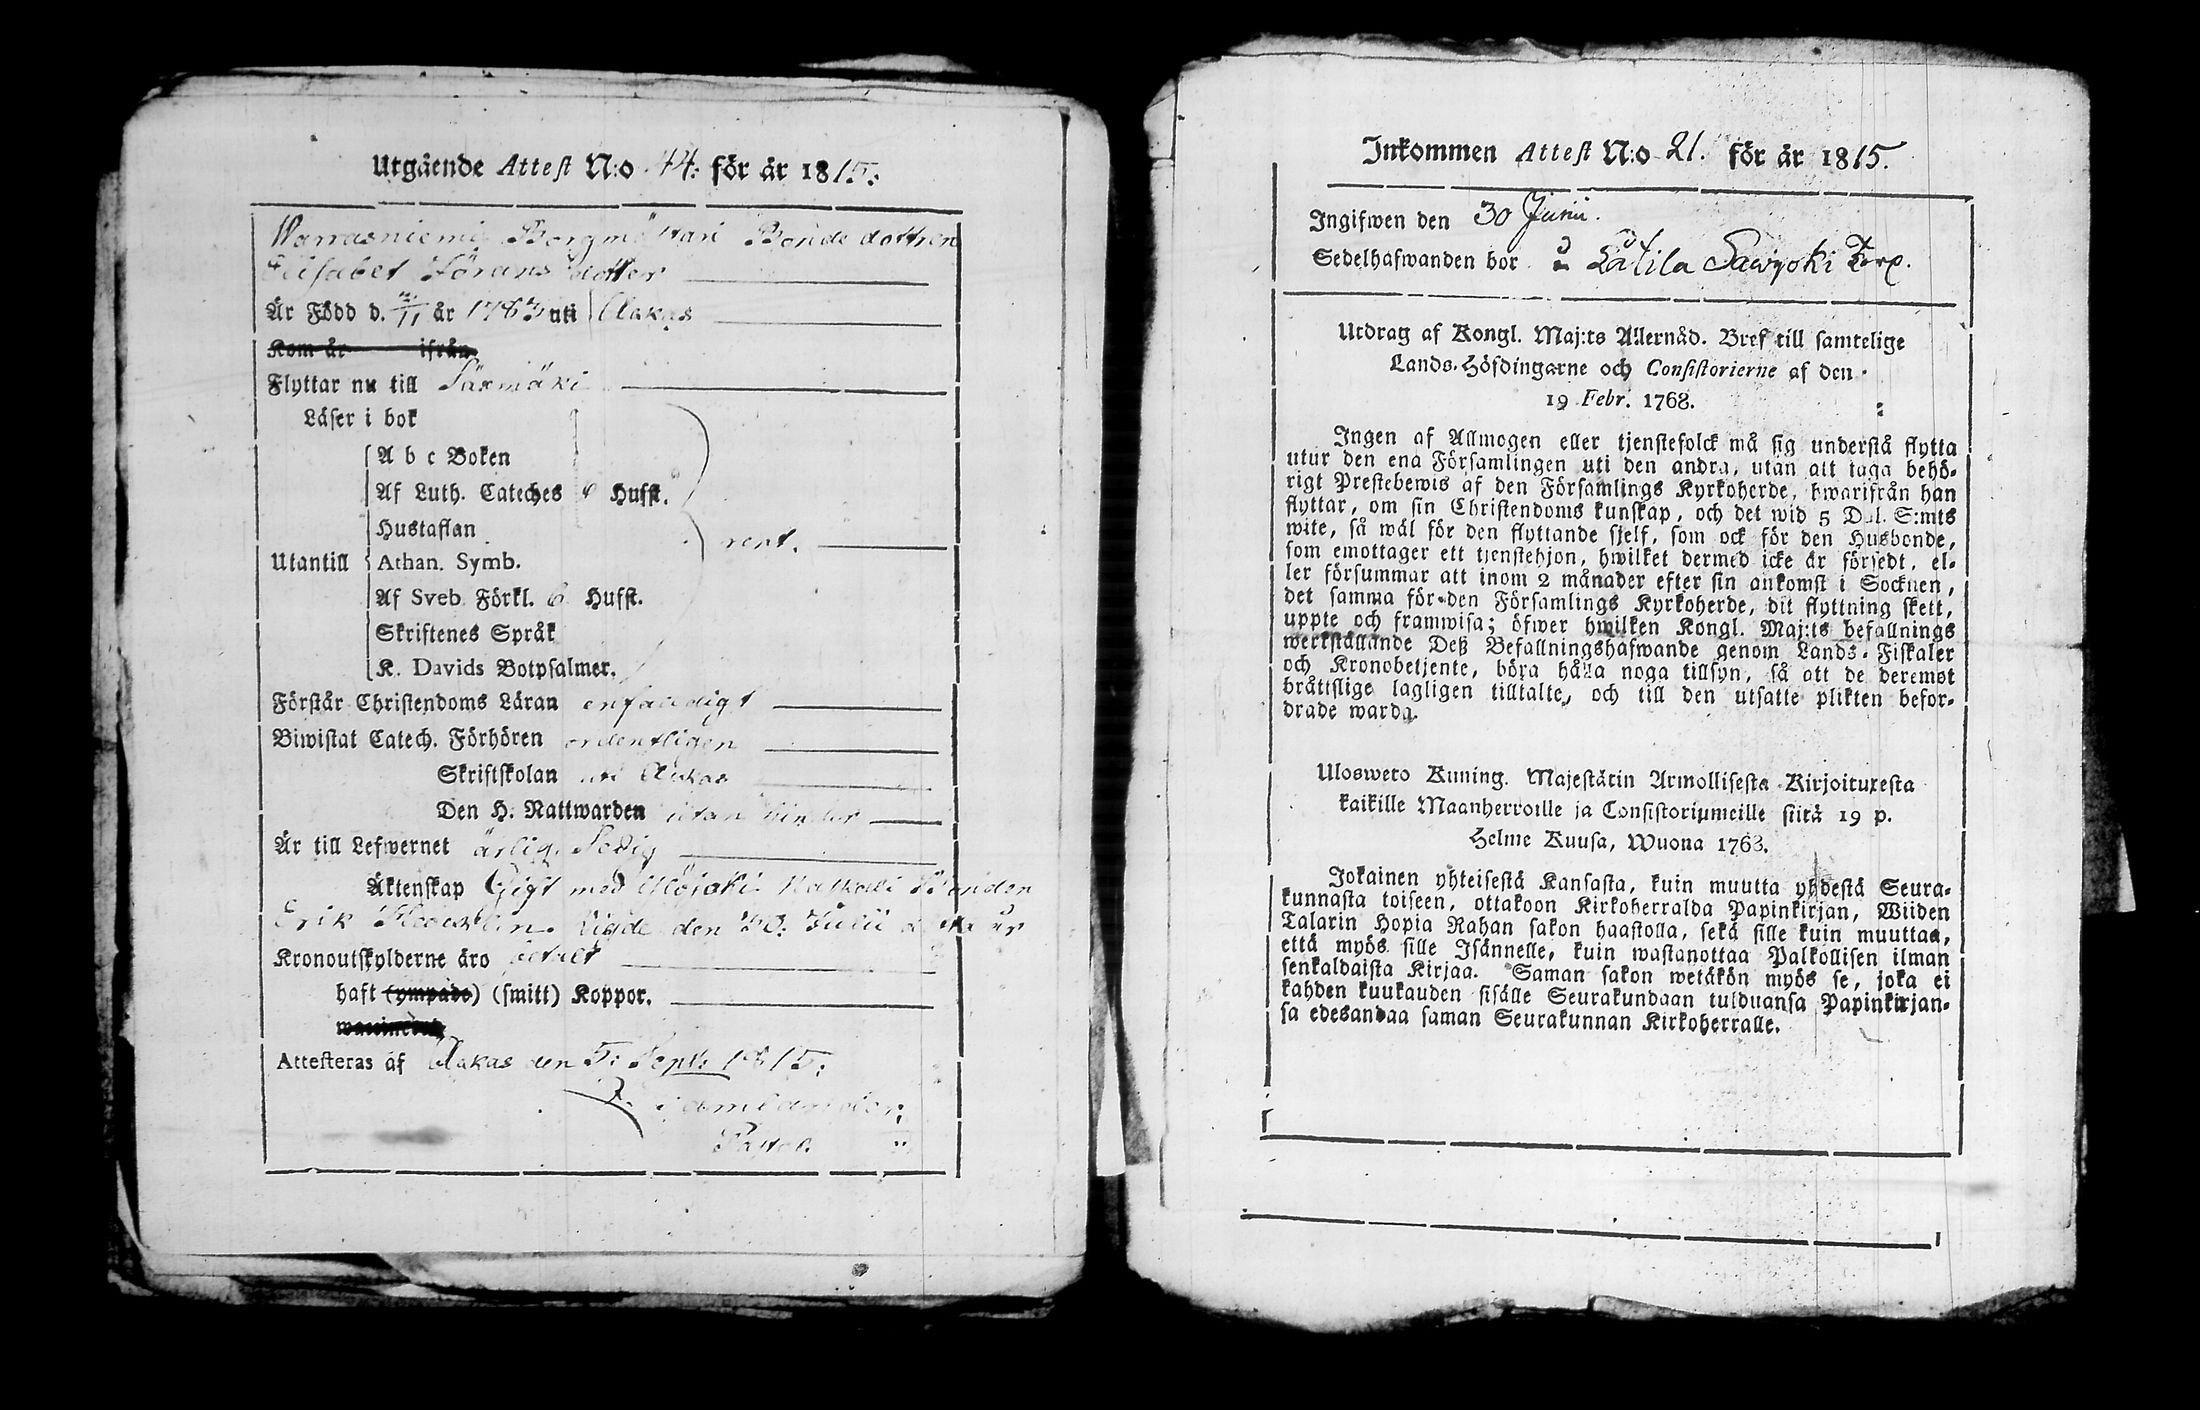 Utgående Attest N:o 44. för år 1815.
Warrasniemi Bonde dottren
Elisabet Jörans dotter
Är Född d. /11 år 178 uti Akkas
Kom år ifrån
Flyttar nu till Säxmäki
Läser i bok
A b c Boken
Af Luth. Cateches 6 Hufst.
Hustaflan
rent.
Utantill Athan. Symb.
Af Sveb. Förkl. 6 Hufst.
Skriftenes Språk
K. Davids Botpsalmer.
Förstår Christendoms Läran enfaldigt
Biwistat Catech. Förhören ordentligen
Skriftskolan uti Akkas
Den H. Nattwarden utan hinder
Är till Lefwernet ärlig. Sedig
Äktenskap Gift med Bonden
Erik Vigde den 30. Julii år
Kronoutskylderne äro betalt
haft (ympade) (smitt) Koppor.
waccinerad
Attesteras af Akkas den 5. Sept. 1815.
Pastor.
Inkommen Attest N:o 21. för år 1815.
Ingifwen den 30 Junii.
Sedelhafwanden bor i Låtila Sawijoki Torp.
Utdrag af Kongl. Maj:ts Allernåd. Bref till samtelige
Lands-Höfdingarne och Consistorierne af den
19 Febr. 1768.
Ingen af Allmogen eller tjenstefolck må sig understå flytta
utur den ena Församlingen uti den andra, utan att taga behö-
rigt Prestebewis af den Församlings Kyrkoherde, hwarifrån han
flyttar, om sin Christendoms kunskap, och det wid 5 Dal. S:mts
wite, så wäl för den flyttande sjelf, som ock för den Husbonde,
som emottager ett tjenstehjon, hwilket dermed icke är försedt, el-
ler försummar att inom 2 månader efter sin ankomst i Socknen,
det samma för den Församlings Kyrkoherde, dit flyttning skett,
uppte och framwisa; öfwer hwilken Kongl. Maj:ts befallnings
werkställande Deß Befallningshafwande genom Lands-Fiskaler
och Kronobetjente, böra hålla noga tillsyn, så att de deremot
bråttslige lagligen tilltalte, och till den utsatte plikten befor-
drade warda.
Uloswero Kuning. Majestätin Armollisesta Kirjoituxesta
kaikille Maanherroille ja Consistoriumeille siitä 19 p.
Helme Kuusa, Wuona 1763.
Jokainen yhteisestä Kansasta, kuin muutta yhdestä Seura-
kunnasta toiseen, ottakoon Kirkoherralda Papinkirjan, Wiiden
Talarin Hopia Rahan sakon haastolla, sekä sille kuin muuttaa,
että myös sille Isännelle, kuin wastanottaa Palkollisen ilman
senkaldaista Kirjaa. Saman sakon wetäkön myös se, joka ei
kahden kuukauden sisälle Seurakundaan tulduansa Papinkirjan-
sa edesandaa saman Seurakunnan Kirkoherralle.